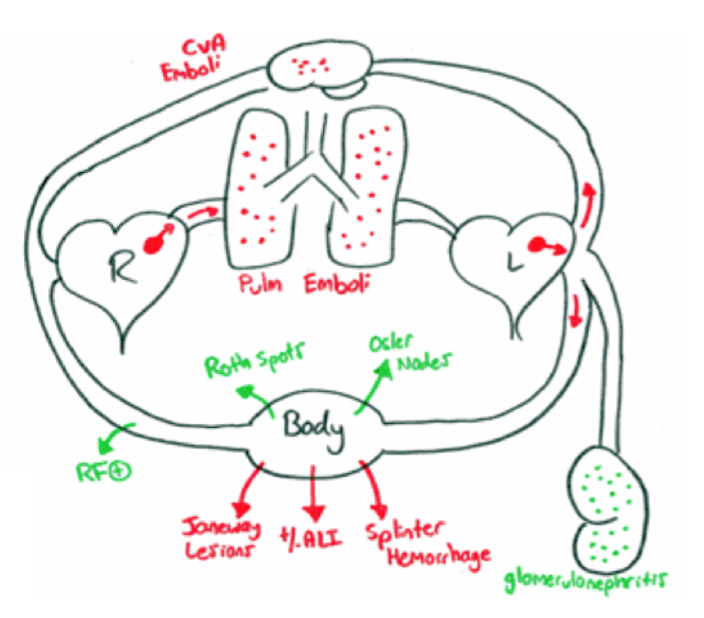 CVA
Emboli
R
L
Pulm Emboli
Roth Spots
Osler
Nodes
Body
RF⊕
Janeway
Lesions
+/- ALI
Splinter
Hemorrhage
glomerulonephritis